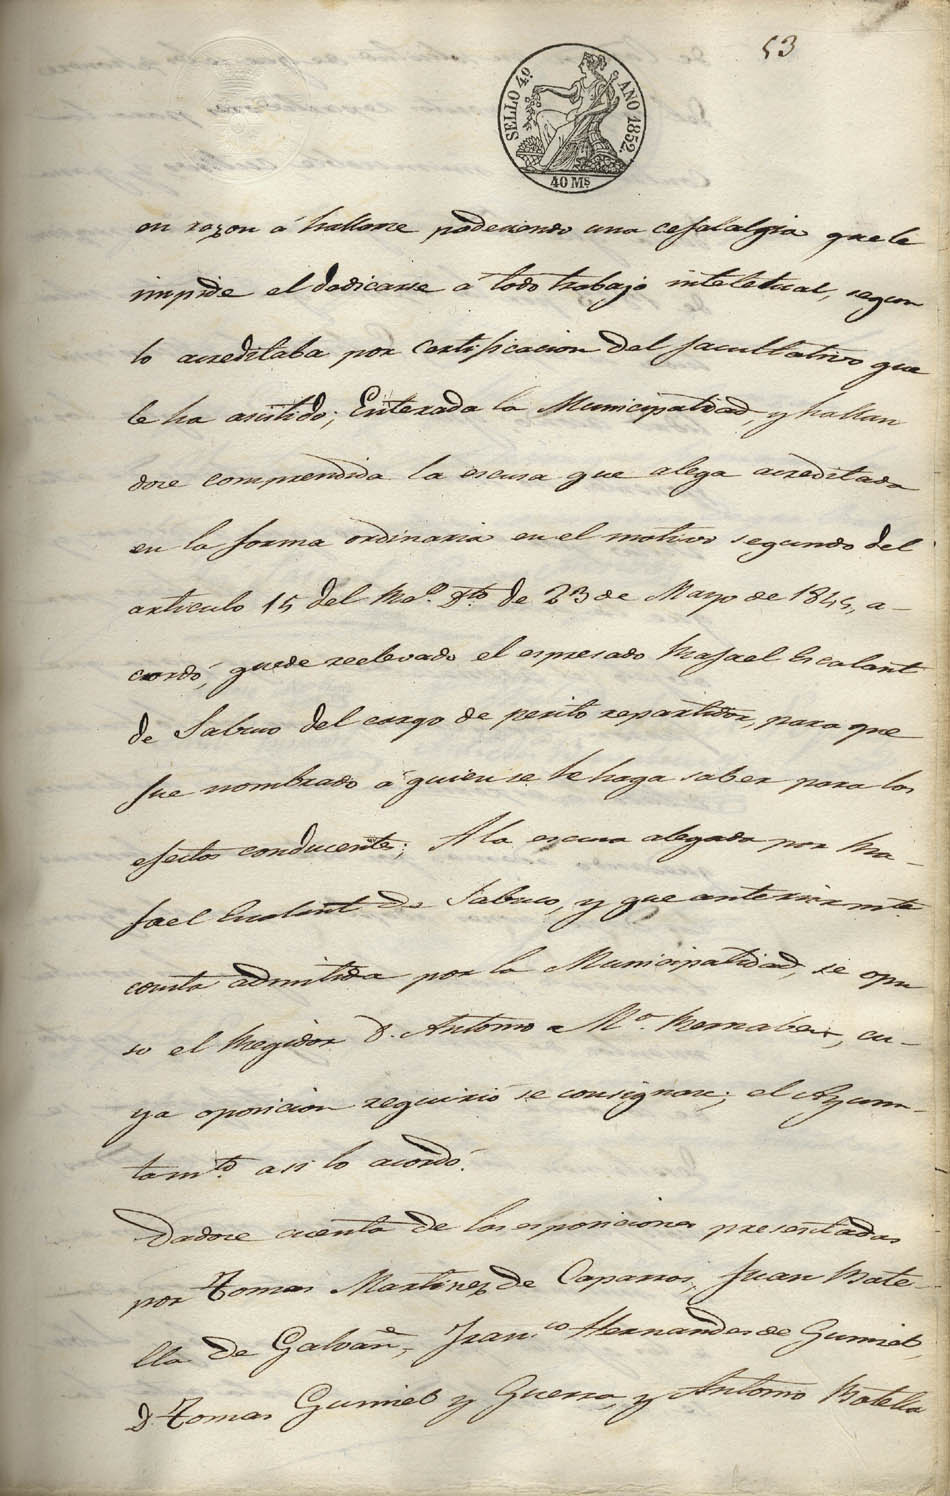 53
SELLO 4º AÑO 1852.
40 Ms
en razon á hallarse padeciendo una cefalalgia que le
impide el dedicarse a todo trabajo inteletual, segun
lo acreditaba por certificacion del facultativo que
le ha asistido; Enterada la Municipalidad, y hallan
dose comprendida la escusa que alega acreditada
en la forma ordinaria en el motivo segundo del
articulo 15 del Rl. Dto. de 23 de Mayo de 1845, a-
cordó, quede reelevado el espresado Rafael Escalant
de Sabuco del cargo de perito repartidor, para que
fue nombrado á quien se le haga saber para los
efectos conducente; A la escusa alegada por Ra-
fael Escalant de Sabuco, y que anteriormte.
consta admitida por la Municipalidad, se opu
so el Regidor D. Antonio Mª. Bernabeu, cu-
ya oposicion requirió se consignase; el Ayun-
tamto. asi lo acordó.
Dadose cuenta de las esposiciones presentadas
por Tomas Martinez de Caparros, Juan Bote-
lla de Galvañ, Franco. Hernandez de Gumiel,
D. Tomas Gumiel y Guerra, y Antonio Botella